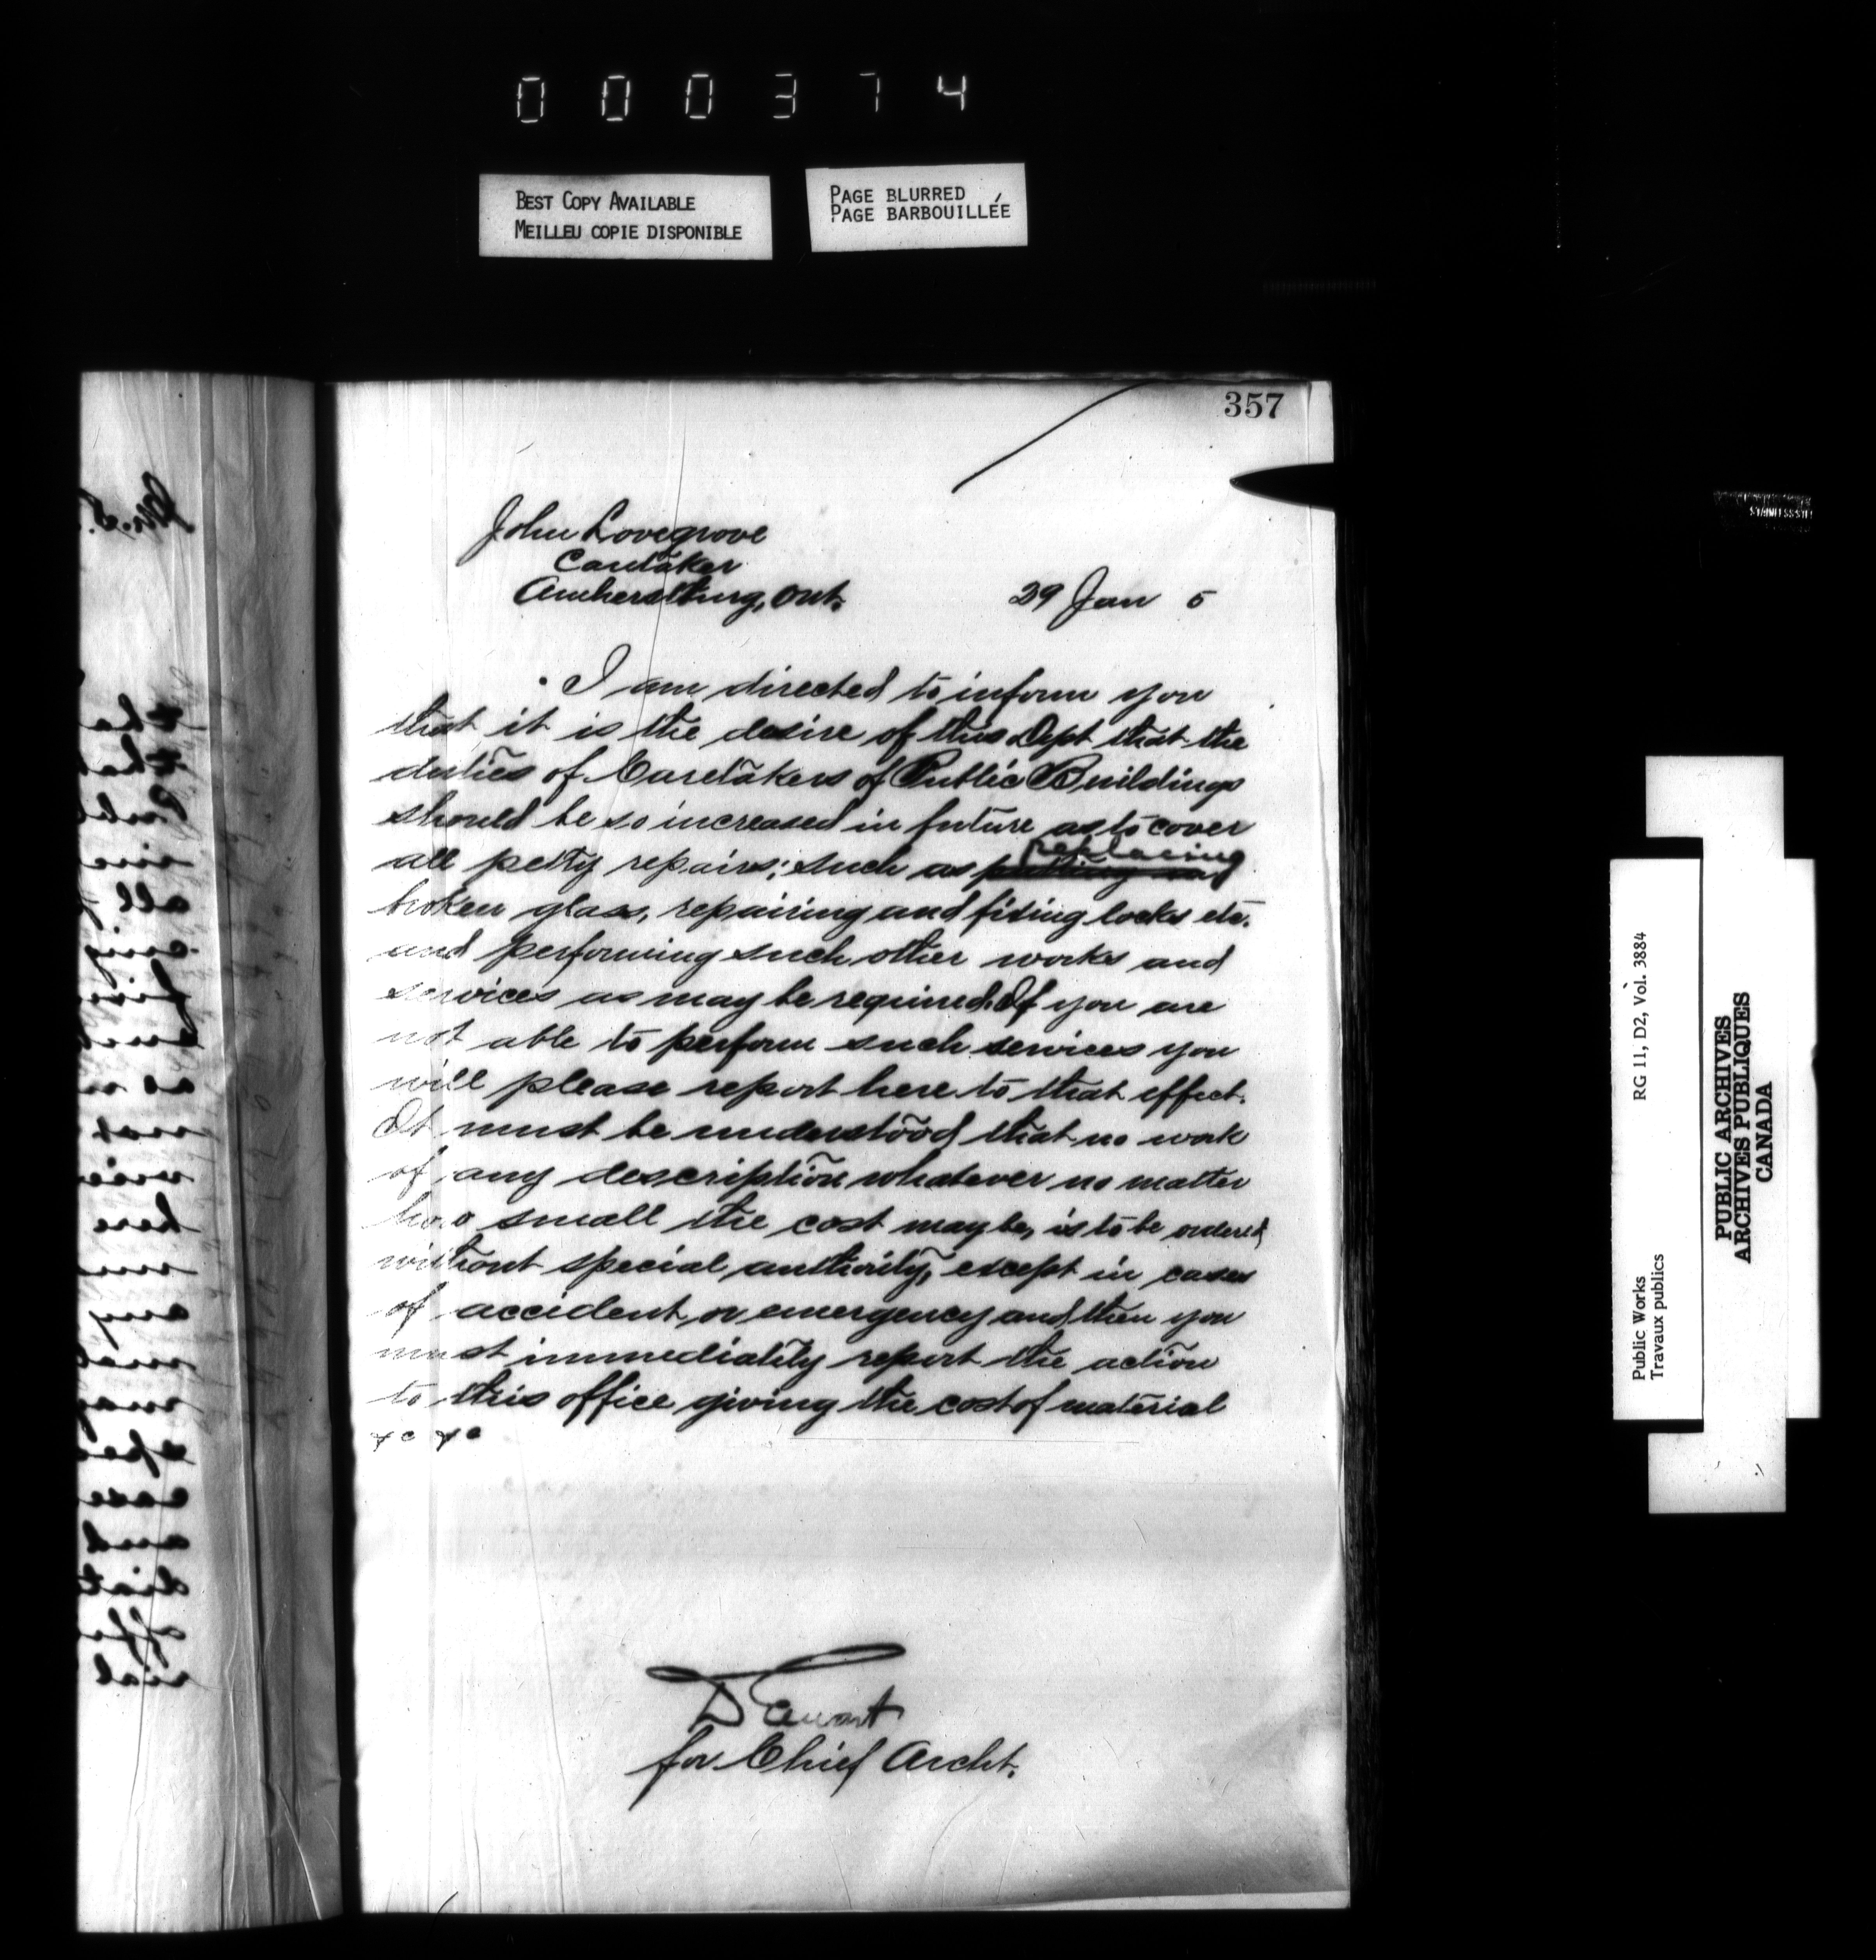 000374
BEST COPY AVAILABLE
MEILLEU COPIE DISPONIBLE
PAGE BLURRED
PAGE BARBOUILLÉE
357
John Lovegrove
Caretaker
Amherstburg, Ont.
29 Jan 5
I am directed to inform you
that it is the desire of this Dept that the
duties of Caretakers of Public Buildings
should be so increased in future as to cover
replacing
all petty repairs; such as
broken glass, repairing and fixing locks etc.
and performing such other works and
services as may be required. If you are
not able to perform such services you
will please report here to that effect.
It must be understood that no work
of any description whatever no matter
how small the cost may be, is to be ordered
without special authority, except in cases
of accident or emergency and then you
must immediately report the action
to this office giving the cost of material
&c &c
D Ewart
for Chief Archt.
Public Works
Travaux publics
RG 11, D2, Vol. 3884
PUBLIC ARCHIVES
ARCHIVES PUBLIQUES
CANADA